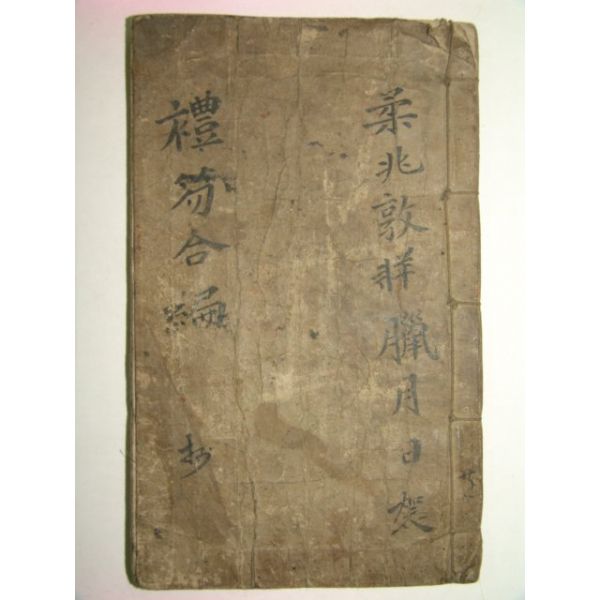 柔兆敦牂臘月日
禮笏合編 抄